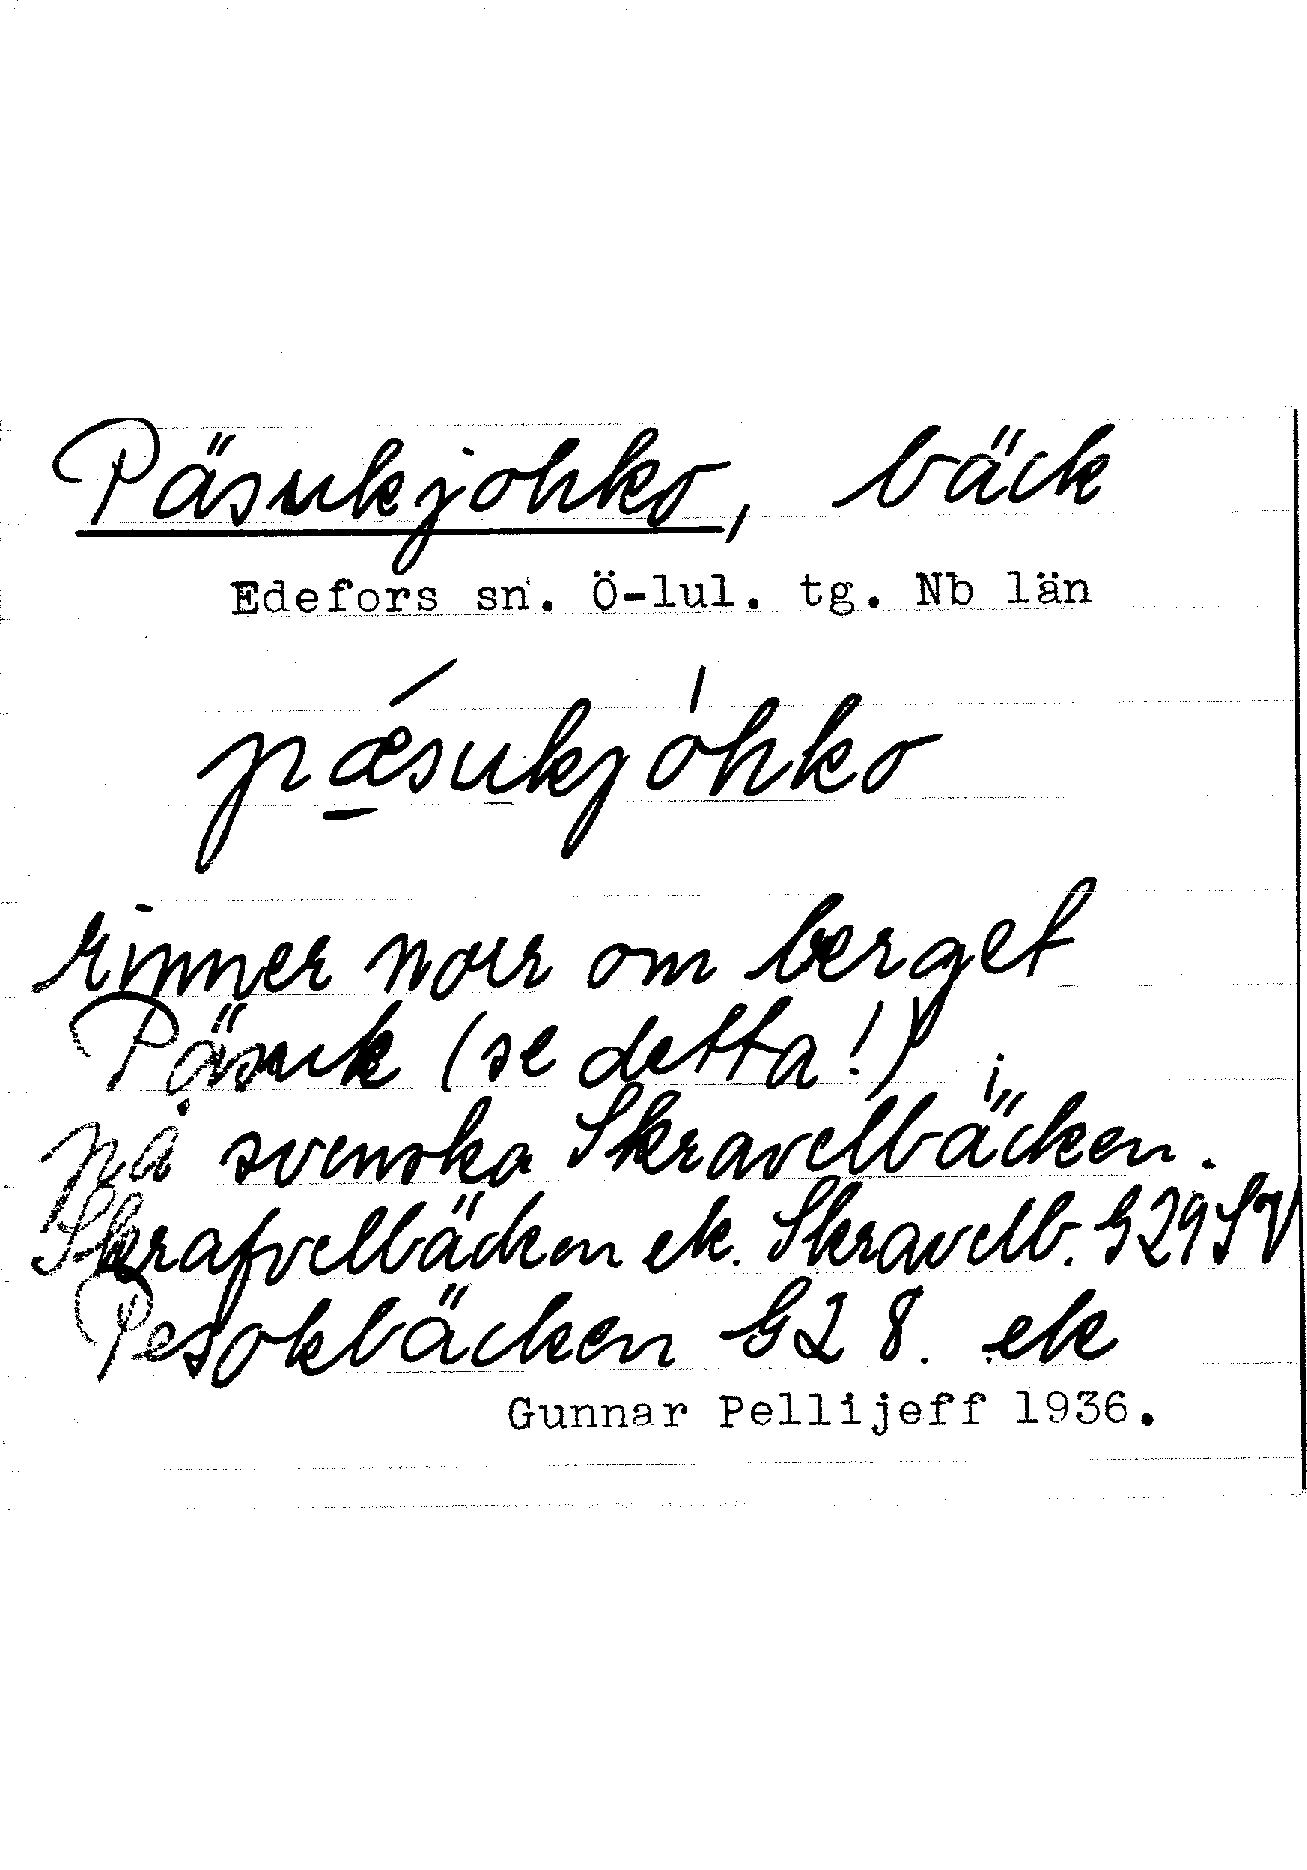 Päsukjohko, bäck
Edefors sn. Ö-lul. tg. Nb län
pǽ̱sukjóhko
rinner norr om berget
Päsuk (se detta!),
på svenska Skravelbäcken.
Skrafvelbäcken ek. Skravelb. G29SV
Pesokbäcken G28. ek
Gunnar Pellijeff 1936.